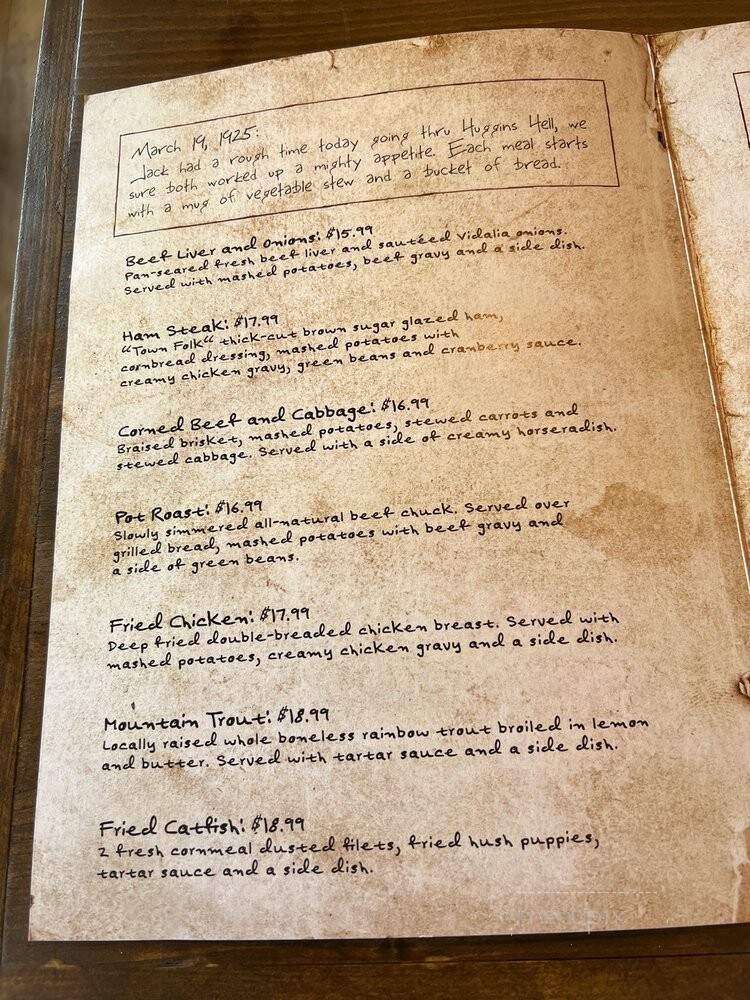 March 19, 1925:
Jack had a rough time today going thru Huggins Hell, we
sure both worked up a mighty appetite. Each meal starts
with a mug of vegetable stew and a bucket of bread.
Beef Liver and Onions: $15.99
Pan-seared fresh beef liver and sautéed Vidalia onions.
Served with mashed potatoes, beef gravy and a side dish.
Ham Steak: $17.99
"Town Folk" thick-cut brown sugar glazed ham,
cornbread dressing, mashed potatoes with
creamy chicken gravy, green beans and cranberry sauce.
Corned Beef and Cabbage: $16.99
Braised brisket, mashed potatoes, stewed carrots and
stewed cabbage. Served with a side of creamy horseradish.
Pot Roast: $16.99
Slowly simmered all-natural beef chuck. Served over
grilled bread, mashed potatoes with beef gravy and
a side of green beans.
Fried Chicken: $17.99
Deep fried double-breaded chicken breast. Served with
mashed potatoes, creamy chicken gravy and a side dish.
Mountain Trout: $18.99
Locally raised whole boneless rainbow trout broiled in lemon
and butter. Served with tartar sauce and a side dish.
Fried Catfish: $18.99
2 fresh cornmeal dusted filets, fried hush puppies,
tartar sauce and a side dish.